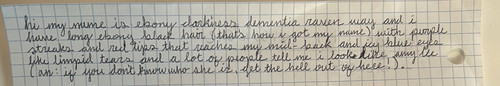 hi my name is ebony darkness dementia raven way and i
have long ebony black hair (thats how i got my name) with purple
streaks and red tips that reaches my mid-back and icy blue eyes
like limpid tears and a lot of people tell me i look like amy lee
(an: if you don't know who she is, get the hell out of here!).